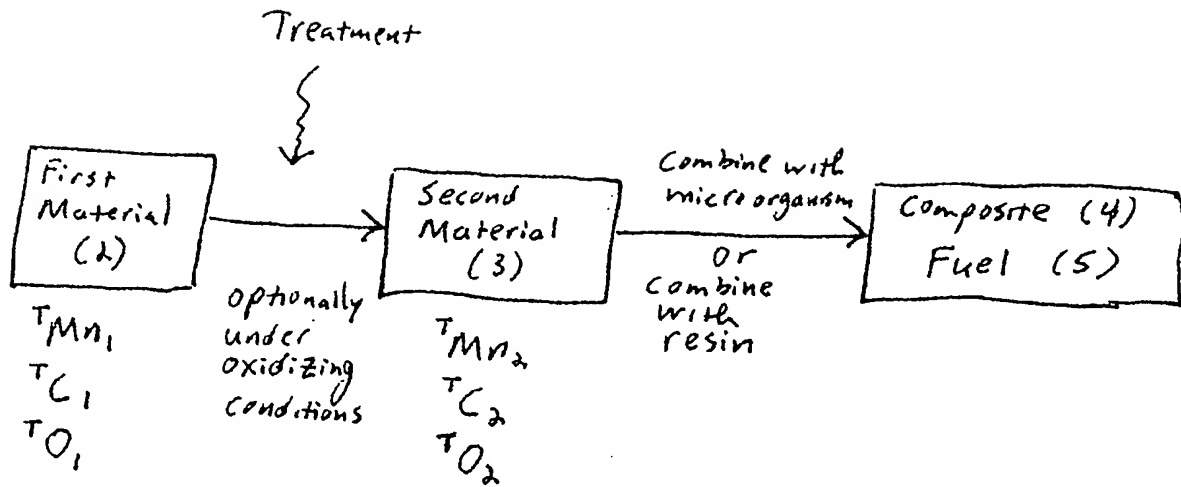 Treatment
First
Material
(2)
TMn1
TC1
TO1
optionally
under
oxidizing
conditions
Second
Material
(3)
TMn2
TC2
TO2
Combine with
microorganism
or
combine
with
resin
Composite (4)
Fuel (5)